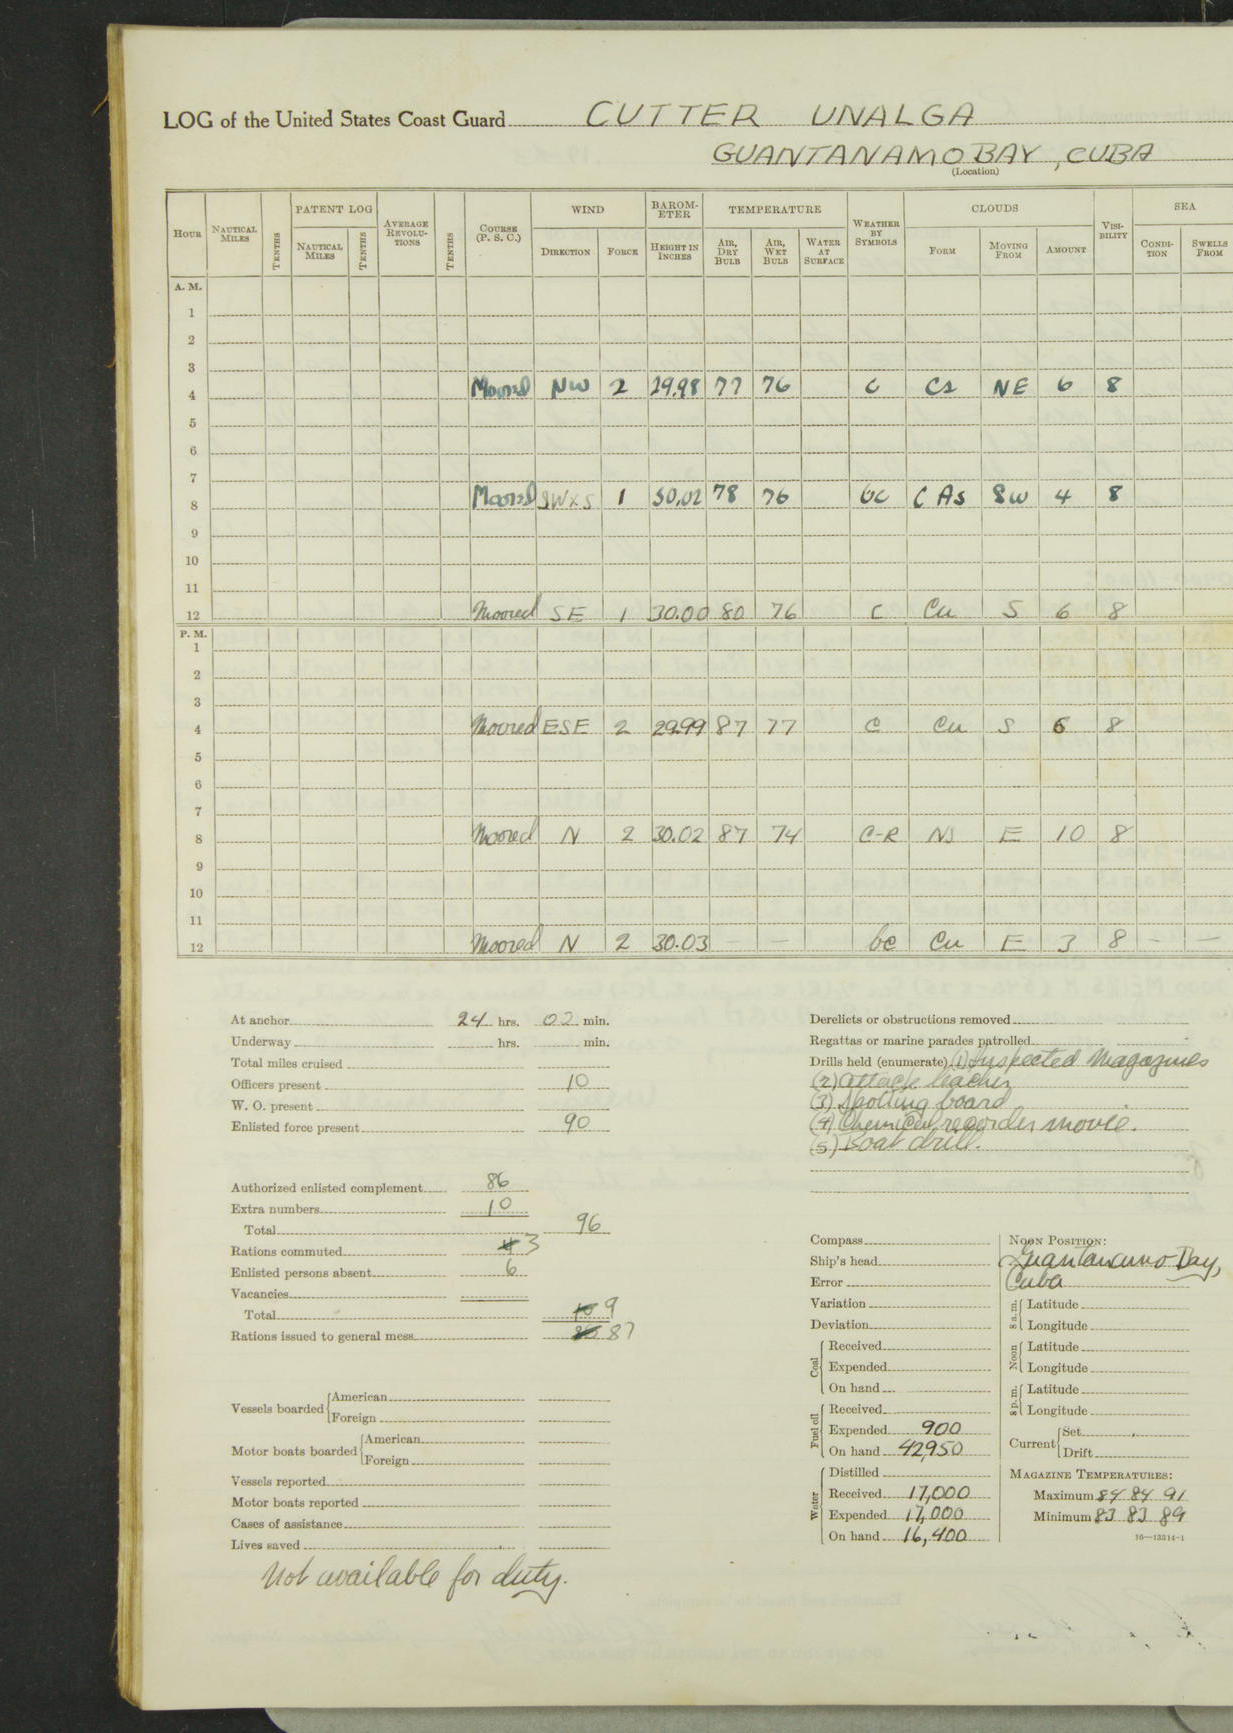 LOG of the United States Coast Guard CUTTER UNALGA
GUANTANAMO BAY, CUBA
(Location)
HOUR NAUTICAL MILES TENTHS PATENT LOG NAUTICAL MILES TENTHS AVERAGE REVOLU-TIONS TENTHS COURSE (P. S. C.) WIND DIRECTION FORCE BAROM-ETER HEIGHT IN INCHES TEMPERATURE AIR, DRY BULB AIR, WET BULB WATER AT SURFACE WEATHER BY SYMBOLS CLOUDS FORM MOVING FROM AMOUNT VISI-BILITY SEA CONDI-TION SWELLS FROM
A. M.
1
2
3
4 Moored NW 2 29.98 77 76 C Cs NE 6 8
5
6
7
8 Moored SWxS 1 30.02 78 76 bc C As SW 4 8
9
10
11
12 Moored SE 1 30.00 80 76 C Cu S 6 8
P. M.
1
2
3
4 Moored ESE 2 29.99 87 77 C Cu S 6 8
5
6
7
8 Moored N 2 30.02 87 74 C-R NS E 10 8
9
10
11
12 Moored N 2 30.03 — — bc Cu E 3 8 - —
At anchor 24 hrs. 02 min.
Underway hrs. min.
Total miles cruised
Officers present 10
W. O. present
Enlisted force present 90
Authorized enlisted complement 86
Extra numbers 10
Total 96
Rations commuted 4 3
Enlisted persons absent 6
Vacancies
Total 10 9
Rations issued to general mess 86 87
Vessels boarded American
Foreign
Motor boats boarded American
Foreign
Vessels reported
Motor boats reported
Cases of assistance
Lives saved
Not available for duty.
Derelicts or obstructions removed
Regattas or marine parades patrolled
Drills held (enumerate) (1) Inspected Magazines
(2) Attack teacher
(3) Spotting board
(4) Chemical recorder movie.
(5) Boat drill.
Compass
Ship's head
Error
Variation
Deviation
Coal Received
Expended
On hand
Fuel oil Received
Expended 900
On hand 42,950
Water Distilled
Received 17,000
Expended 17,000
On hand 16,400
NOON POSITION:
Guantanamo Bay,
Cuba
8 a. m. Latitude
Longitude
Noon Latitude
Longitude
8 p. m. Latitude
Longitude
Current Set
Drift
MAGAZINE TEMPERATURES:
Maximum 84 84 91
Minimum 83 83 89
16—13314-1